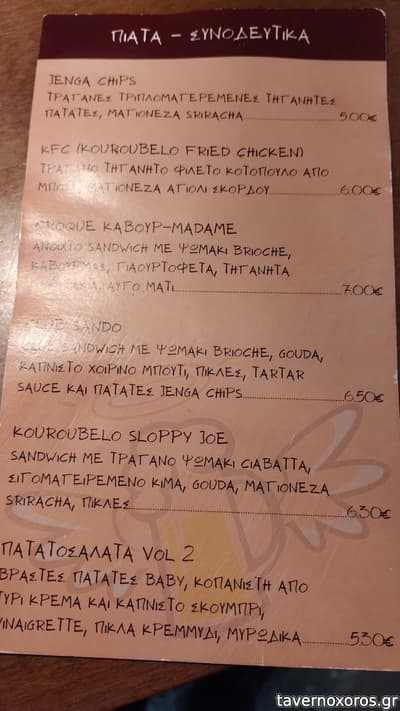 ΠΙΑΤΑ - ΣΥΝΟΔΕΥΤΙΚΑ
JENGA CHIPS
ΤΡΑΓΑΝΕΣ ΤΡΙΠΛΟΜΑΓΕΡΕΜΕΝΕΣ ΤΗΓΑΝΗΤΕΣ
ΠΑΤΑΤΕΣ, ΜΑΓΙΟΝΕΖΑ SRIRACHA 5.00€
KFC (KOUROUBELO FRIED CHICKEN)
ΤΡΑΓΑΝΟ ΤΗΓΑΝΗΤΟ ΦΙΛΕΤΟ ΚΟΤΟΠΟΥΛΟ ΑΠΟ
ΜΠΟΥΤΙ, ΜΑΓΙΟΝΕΖΑ ΑΓΙΟΛΙ ΣΚΟΡΔΟΥ 6.00€
CROQUE ΚΑΒΟΥΡ-MADAME
ΑΝΟΙΧΤΟ SANDWICH ΜΕ ΨΩΜΑΚΙ BRIOCHE,
ΚΑΒΟΥΡΜΑΣ, ΓΙΑΟΥΡΤΟΦΕΤΑ, ΤΗΓΑΝΗΤΑ
ΑΥΓΟ ΜΑΤΙ 7.00€
CLUB SANDO
CLUB SANDWICH ΜΕ ΨΩΜΑΚΙ BRIOCHE, GOUDA,
ΚΑΠΝΙΣΤΟ ΧΟΙΡΙΝΟ ΜΠΟΥΤΙ, ΠΙΚΛΕΣ, TARTAR
SAUCE ΚΑΙ ΠΑΤΑΤΕΣ JENGA CHIPS 6.50€
KOUROUBELO SLOPPY JOE
SANDWICH ΜΕ ΤΡΑΓΑΝΟ ΨΩΜΑΚΙ CIABATTA,
ΣΙΓΟΜΑΓΕΙΡΕΜΕΝΟ ΚΙΜΑ, GOUDA, ΜΑΓΙΟΝΕΖΑ
SRIRACHA, ΠΙΚΛΕΣ 6.30€
ΠΑΤΑΤΟΣΑΛΑΤΑ VOL 2
ΒΡΑΣΤΕΣ ΠΑΤΑΤΕΣ BABY, ΚΟΠΑΝΙΣΤΗ ΑΠΟ
ΤΥΡΙ ΚΡΕΜΑ ΚΑΙ ΚΑΠΝΙΣΤΟ ΣΚΟΥΜΠΡΙ,
VINAIGRETTE, ΠΙΚΛΑ ΚΡΕΜΜΥΔΙ, ΜΥΡΩΔΙΚΑ 5.30€
tavernoxoros.gr